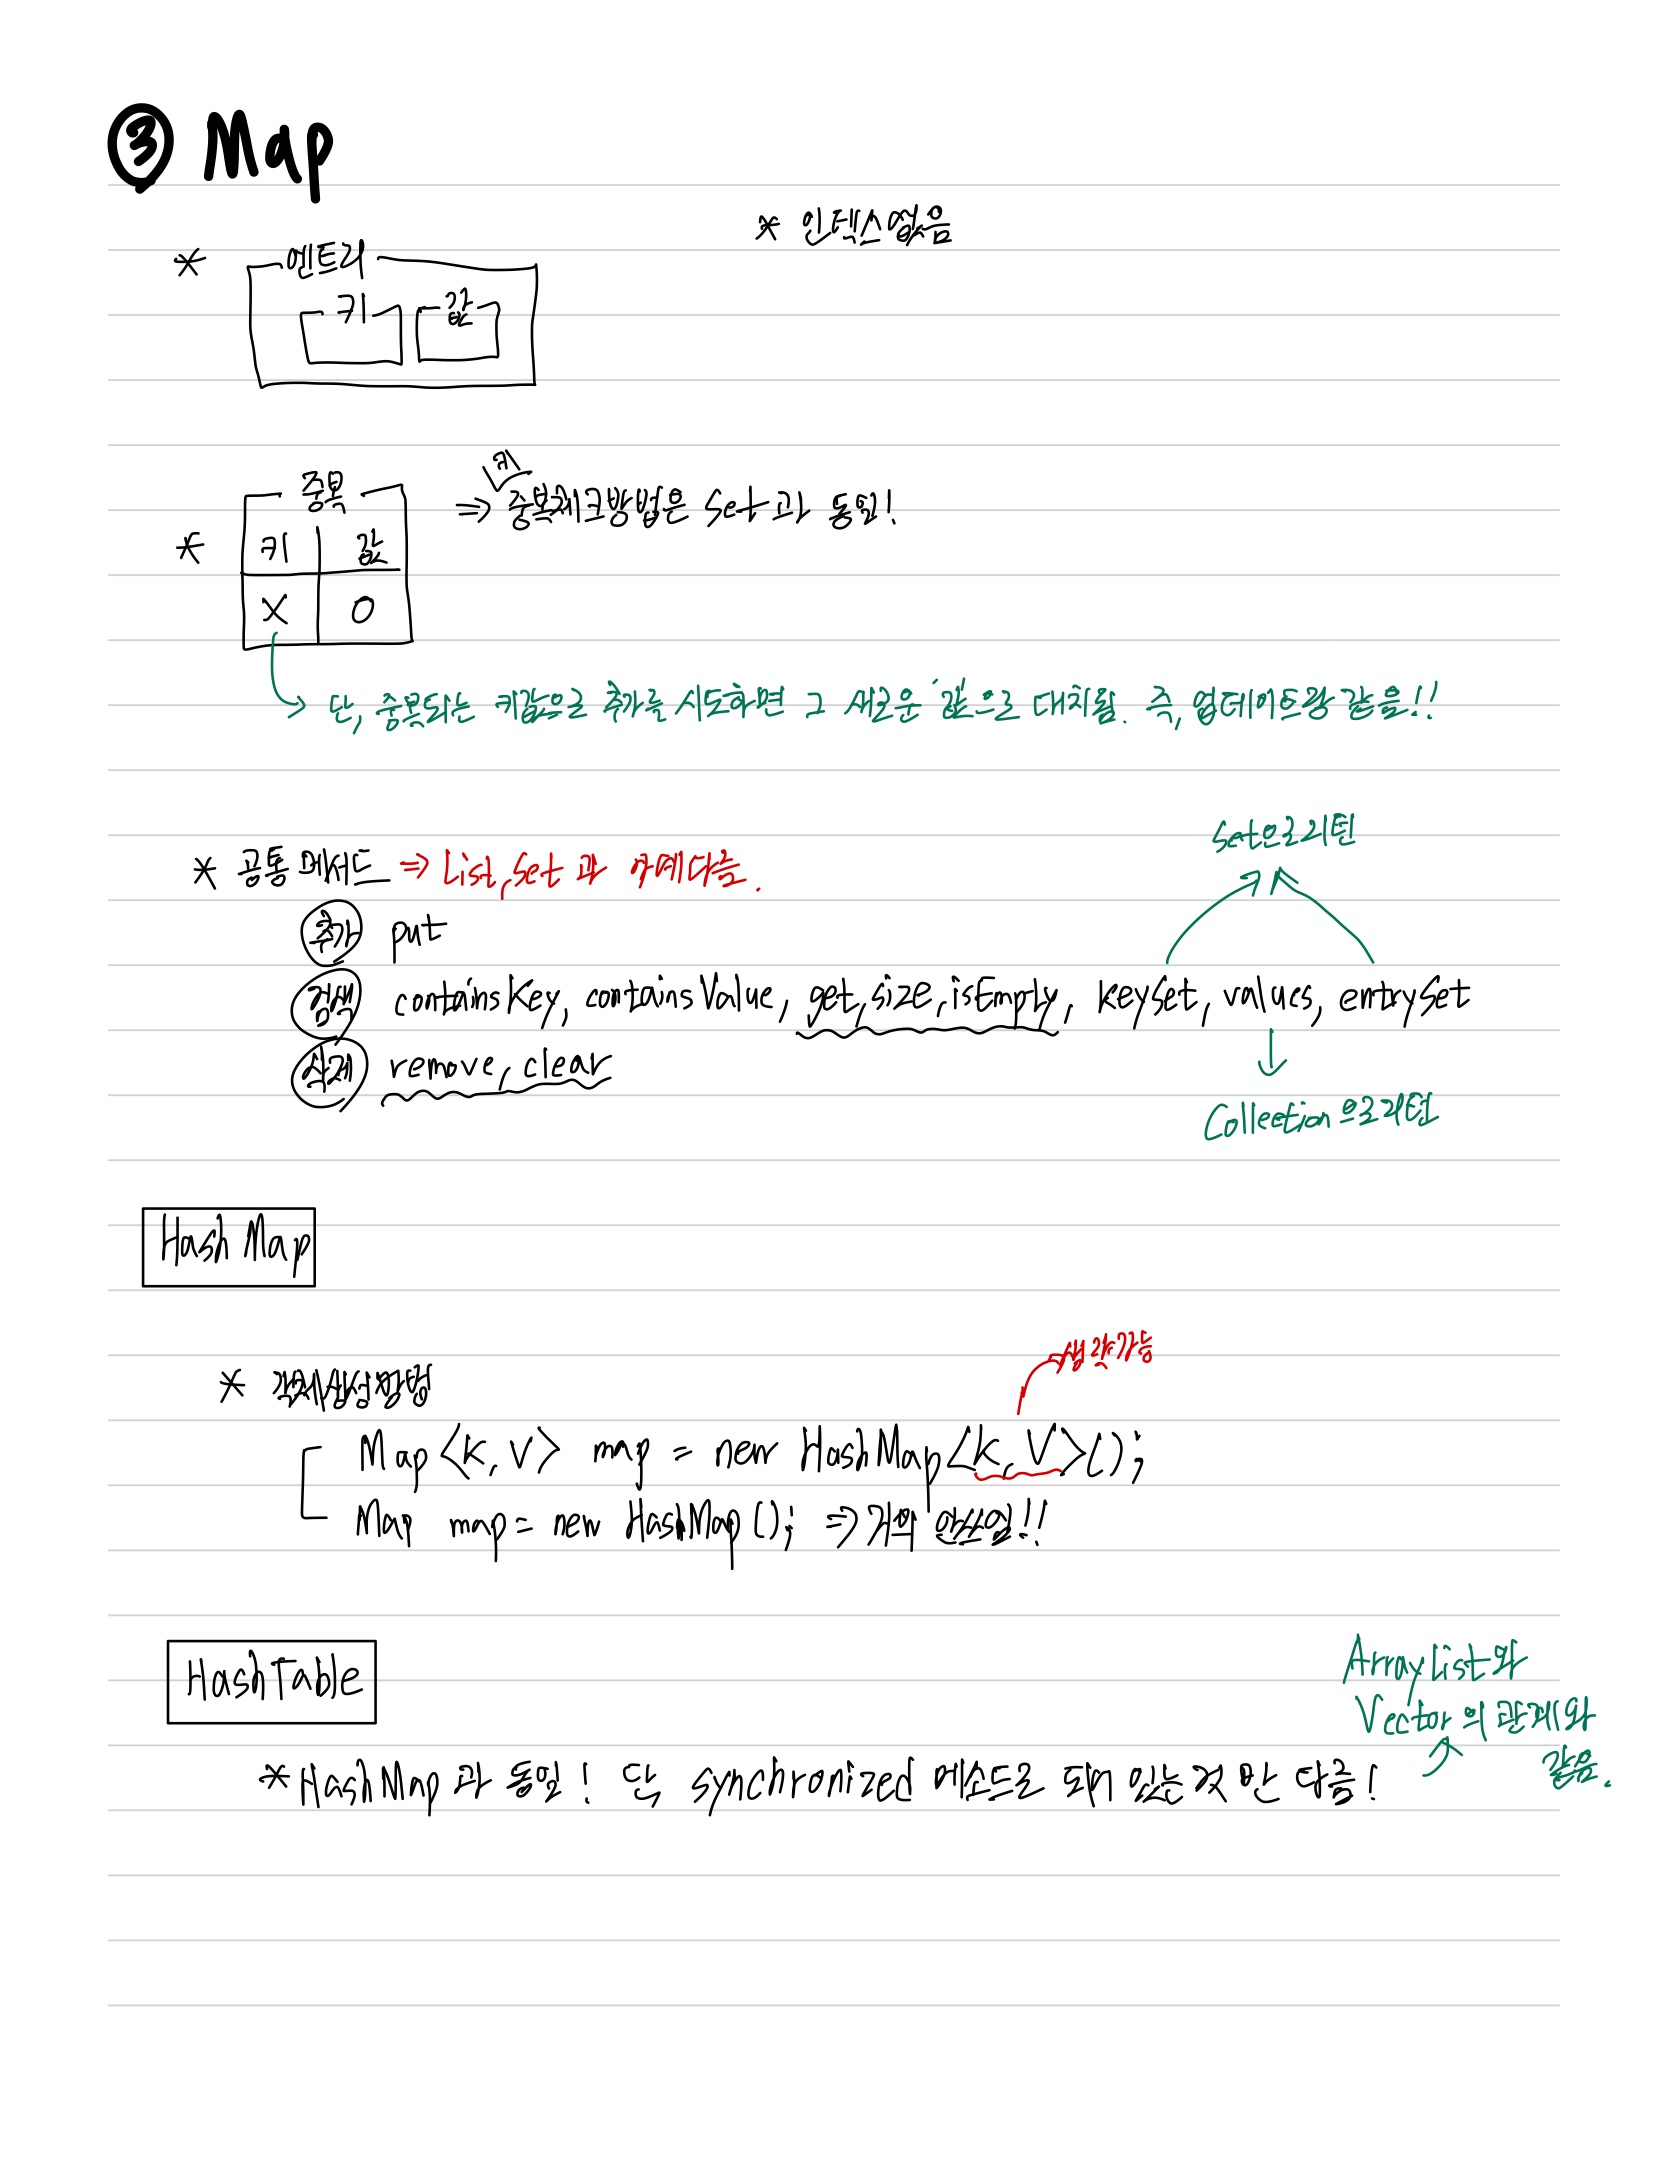 ③ Map
* 인덱스없음
* 엔트리
키 값
중복
키
⇒ 중복체크방법은 Set과 동일!
* 키 값
X O
→ 단, 중복되는 키값으로 추가를 시도하면 그 새로운 '값'으로 대치됨. 즉, 업데이트랑 같음!!
Set으로 리턴
* 공통메서드 ⇒ List, Set과 아예다름.
추가 put
검색 containsKey, containsValue, get, size, isEmpty, keySet, values, entrySet
삭제 remove, clear
Collection으로 리턴
Hash Map
생략가능
* 객체생성방법
Map<K, V> map = new HashMap<K, V>();
Map map = new HashMap(); ⇒ 거의 안쓰임!!
HashTable
ArrayList와
Vector의 관계와
같음.
* HashMap과 동일! 단 synchronized 메소드로 되어 있는것만 다름!